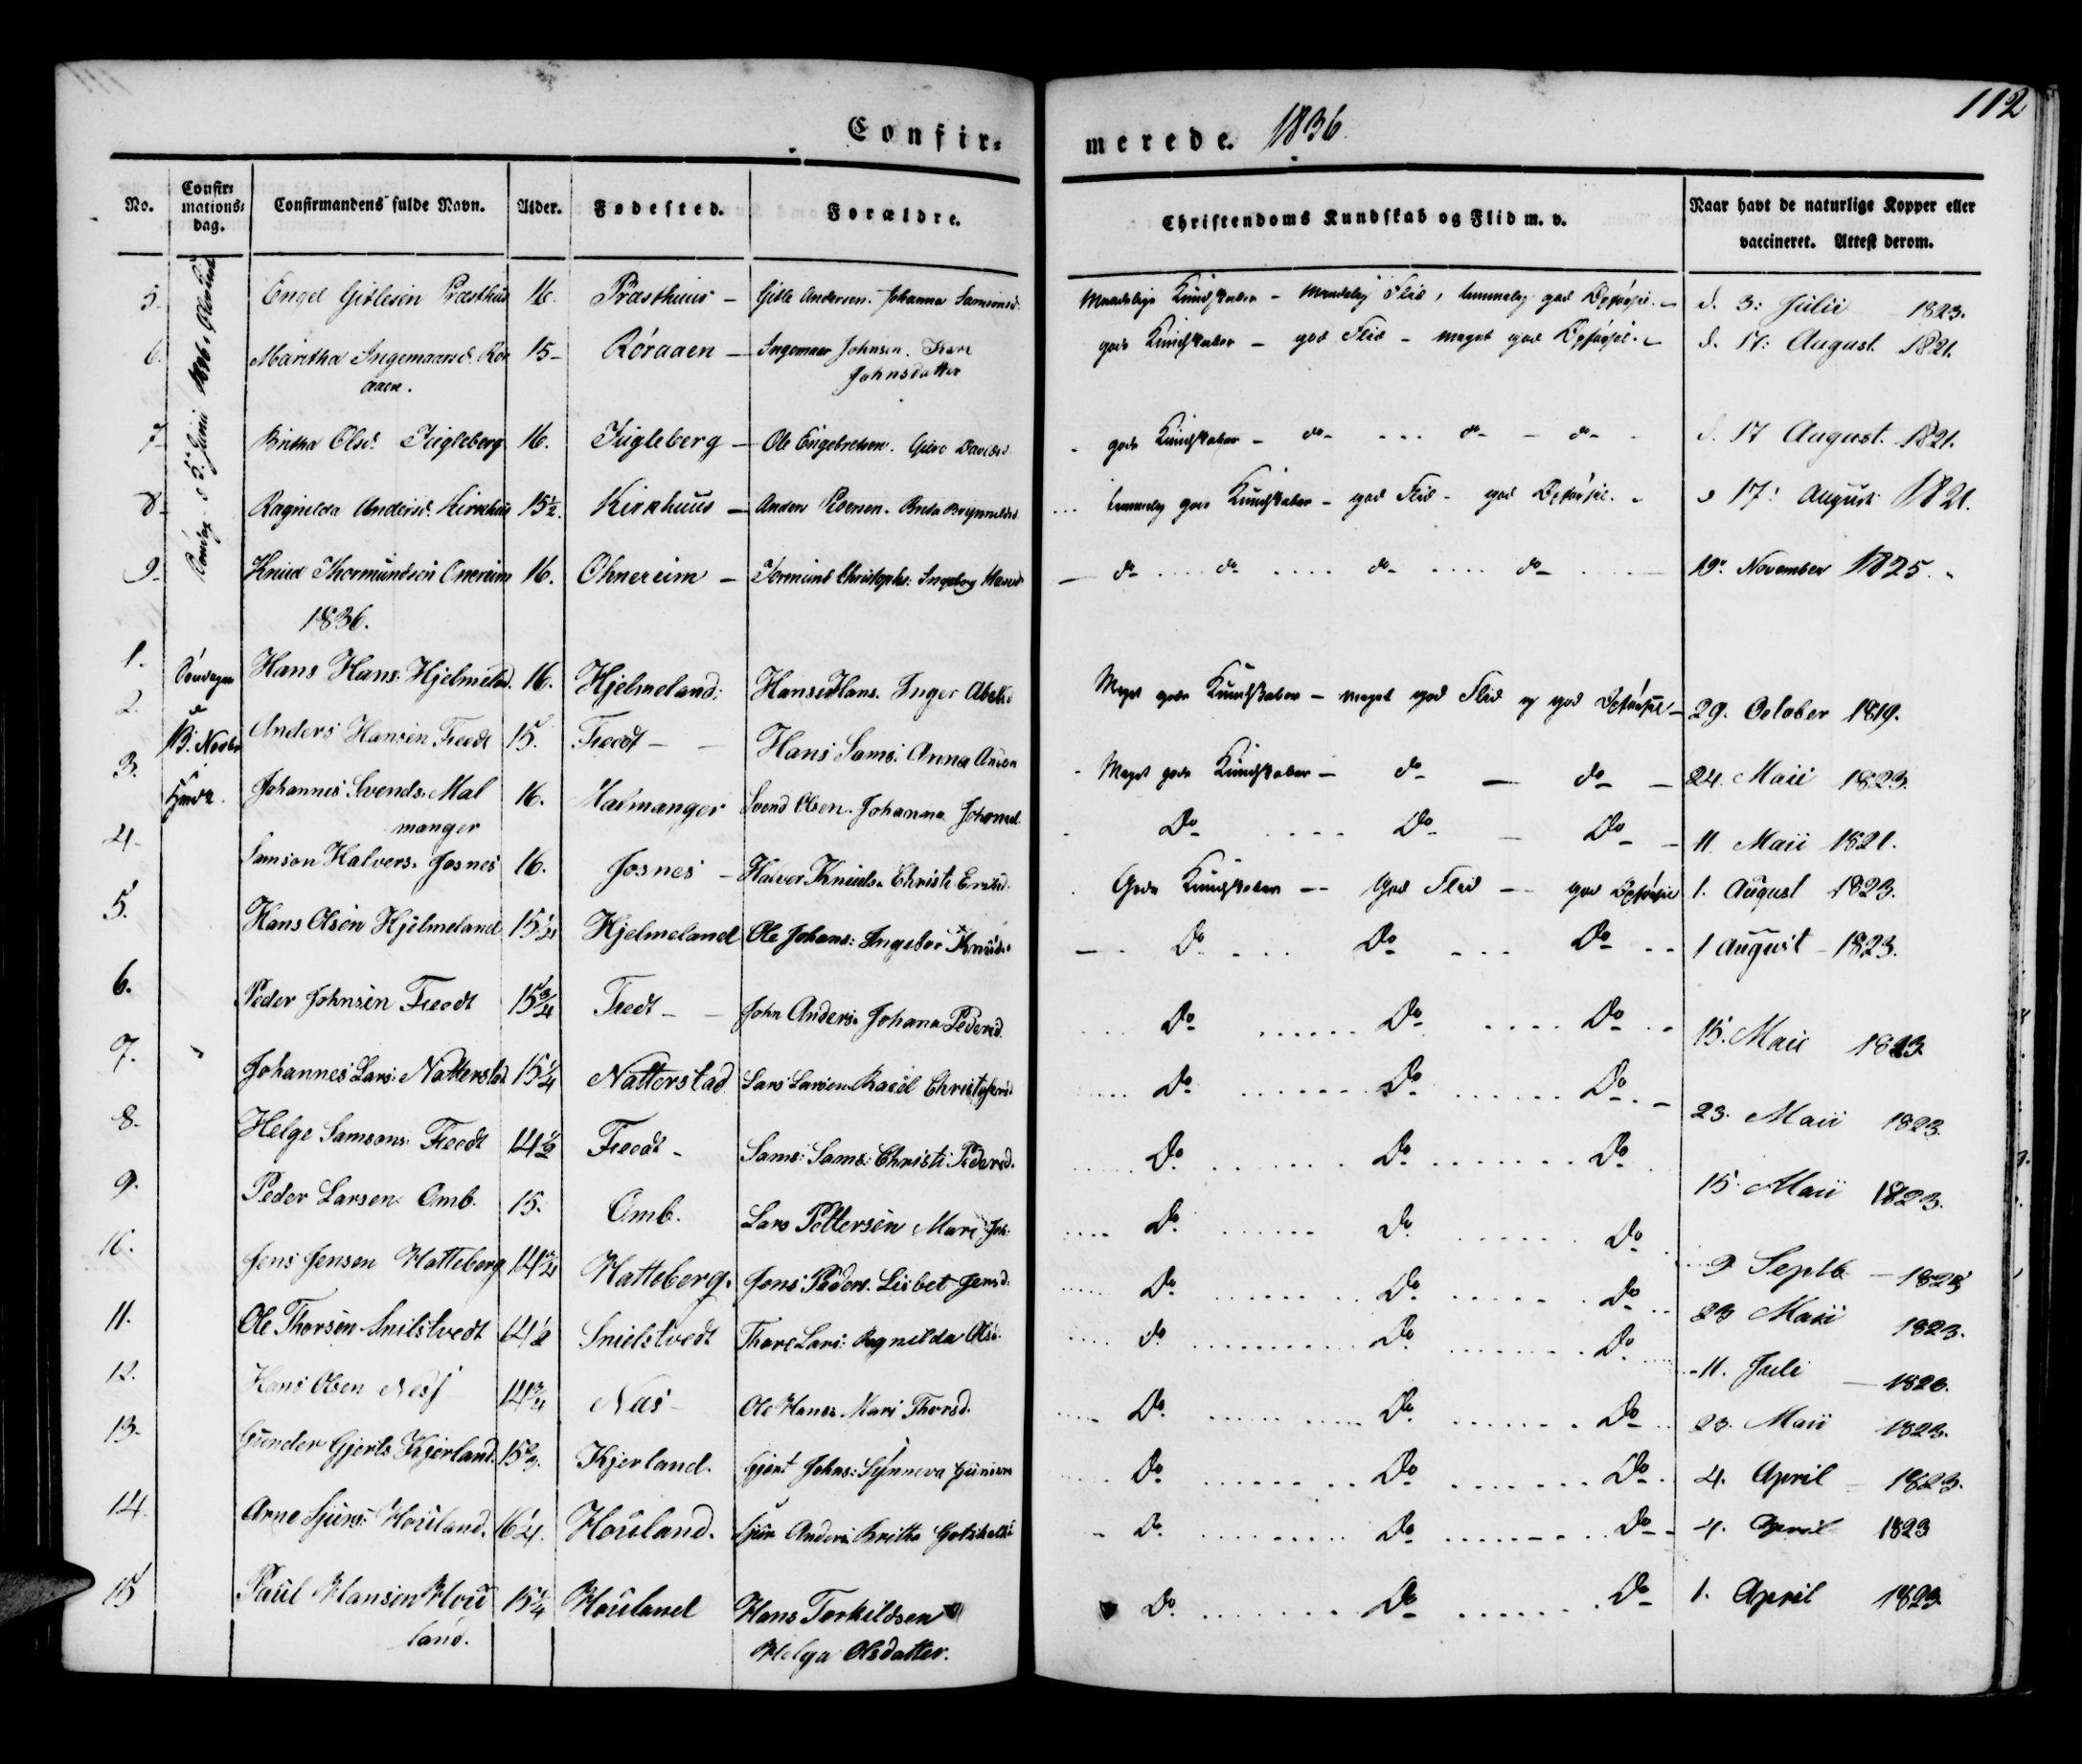 112
Confirmerede. 1836.
No. Confirmationsdag. Confirmandens fulde Navn. Alder. Fødested. Forældre. Christendoms Kundskab og Flid m. v. Naar havt de naturlige Kopper eller vaccineret. Attest derom.
5. Engel Gitlesen Præsthuus 16. Præsthuus – Gitle Andersen. Johanna Samsonsd. Maadelige Kundskaber – Maadelig Flid, temmelig god Opførsel. d. 3: Julii 1823.
6. Maritha Ingemaarsd. Rör 15 – Röraaen – Ingemaar Johnsen. Kari gode Kundskaber – god Flid – meget god Opførsel. d. 17: August. 1821.
aaen. Johnsdatter
7 Britha Olsd. Fugleberg 16. Fugleberg – Ole Engebretsen. gode Kundskaber – do – do – do d. 17 August. 1821.
8 Ragnilda Andersd. Kirkhus 15½. Kirkhuus – Anders temmelig gode Kundskaber – god Flid – god Opførsel. d 17: August 1821.
9 Knud Thormundsen Onereim 16. Ohnereim – Tormund Christophs: Ingeborg do do do do 19. November 1825.
1836.
1. Søndagen Hans Hans: Hjelmeland. 16. Hjelmeland: Hans Hans. Inger Meget gode Kundskaber – meget god Flid og god Opførsel – 29. October 1819.
2. d 13. Novbr Anders Hansen Treodt 15. Treodt – Hans Sams: Anna Meget gode Kundskaber – do – do – 24. Maii 1823.
3. Johannes Svends. Mal 16. Malmanger Svend Olsen. Johanna Do Do – Do – 11. Maii 1821.
manger
4 Samson Halvers. Josnes 16. Josnes – Halvor Knuds. Christi Gode Kundskaber – God Flid – god Opførsel 1. August 1823.
5. Hans Olsen Hjelmeland 15½ Hjelmeland Ole Johans: Ingebor Knuds. Do Do Do 1 August – 1823.
6. Peder Johnsen Treodt 15¾ Tredt – John Anders. Johana Pedersd. Do Do Do 15. Maii 1823
7. Johannes Lars: Natterstad 15¼ Natterstad Lars Larsen. Do Do Do 23. Maii 1823.
8. Helge Samsons: Treodt 14½ Treodt – Sams: Sams: Christi Pedersd. Do Do Do 15. Maii 1823.
9. Peder Larsen Omb. 15. Omb. Lars Pettersen Mari Joh: Do Do Do 9 Septb – 1823
10. Jens Jensen Hatteberg 14¾ Hatteberg. Jens Peders. Lisbet Jensd. Do Do Do 23 Maii 1823.
11. Ole Thorsen Snilstvedt 14½ Snielstvedt Thore Lars: Ragnilda Olsd. do Do Do 11. Juli – 1823.
12. Hans Olsen Nes 14¾ Næs – Ole Hans. Mari Thorsd. Do Do Do 23. Maii 1823.
13. Gunder Gjerts Kjerland. Kjerland. Gjert Johns: Synneva Do Do Do 4. April – 1823.
14. Arne Sjurs: Houland. 16¼. Houland. Sjur Anders. Britta Do Do Do 4. April 1823
15 Paul Hansen Hou 15¼ Houland Hans Torkildsen Do Do Do 1. April 1823
land. Helga Olsdatter.